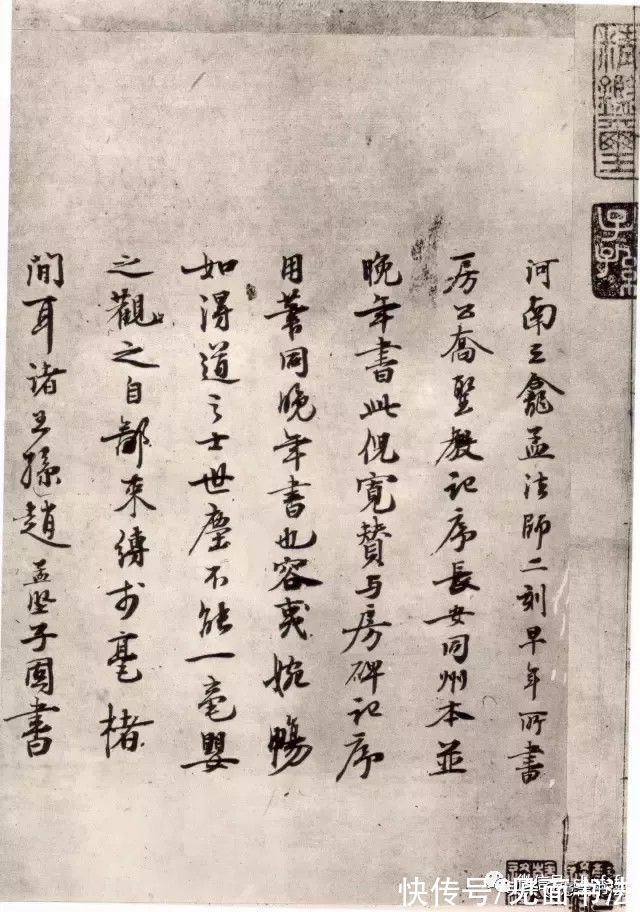 精鑑璽
子孫
河南三龕孟法師二刻早年所書
房公喬聖教記序長安同州本並
晚年書此倪寬贊与房碑記序
用筆同晚年書也容夷婉暢
如得道之士世塵不能一毫嬰
之觀之自鄙束縛於毫楮
間耳諸王孫趙孟堅子固書
快传号/见面书法